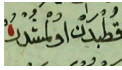 قُطْبُدَنْ اَوْلْمُشْدُرْ